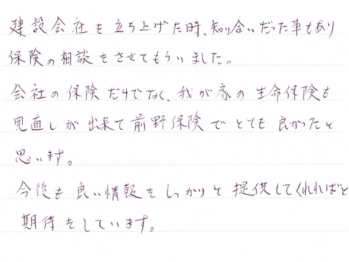 建設会社を立ち上げた時、知り合いだった事もあり
保険の相談をさせてもらいました。
会社の保険だけでなく、我が家の生命保険も
見直しが出来て前野保険でとても良かったと
思います。
今後も良い情報をしっかりと提供してくれればと
期待をしています。